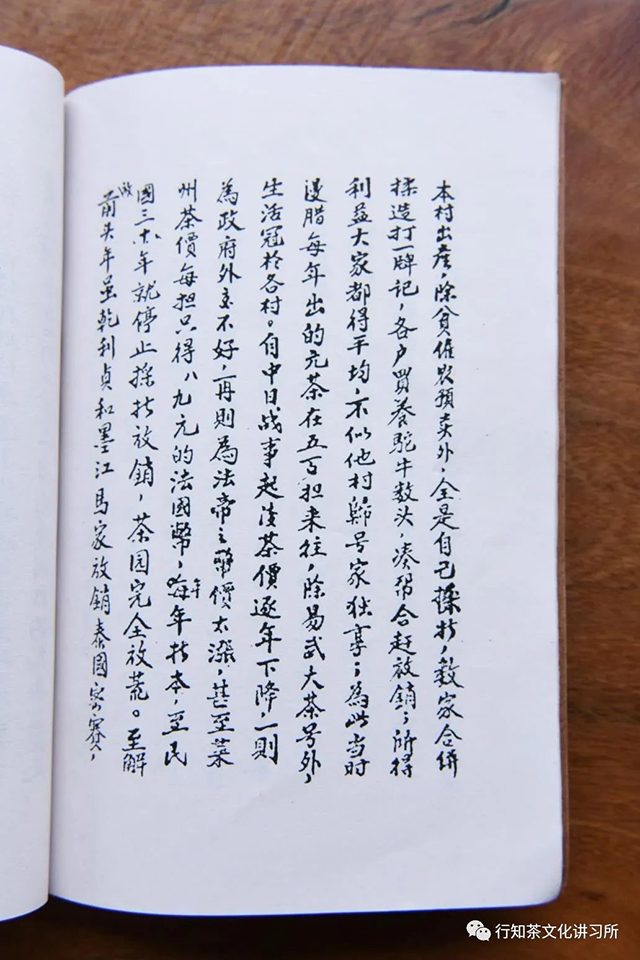 本村出產，除貧僱农預卖外，全是自己採折，数家合併
揉造打一牌记，各户買养駝牛数头，凑帮合赶放銷；所得
利益大家都得平均，不似他村归号家独享；為此当时
漫腊每年出的元茶在五百担来往，除易武大茶号外，
生活冠於各村。自中日战事起後茶價逐年下降，一则
為政府外交不好，再则為法帝之幣價太漲，甚至菜
州茶價每担只得八九元的法國幣，每年折本，至民
國三十年就停止採折放銷，茶园完全放荒。至解
放前头年虽乾利貞和墨江馬家放銷泰國寮賽，
行知茶文化讲习所